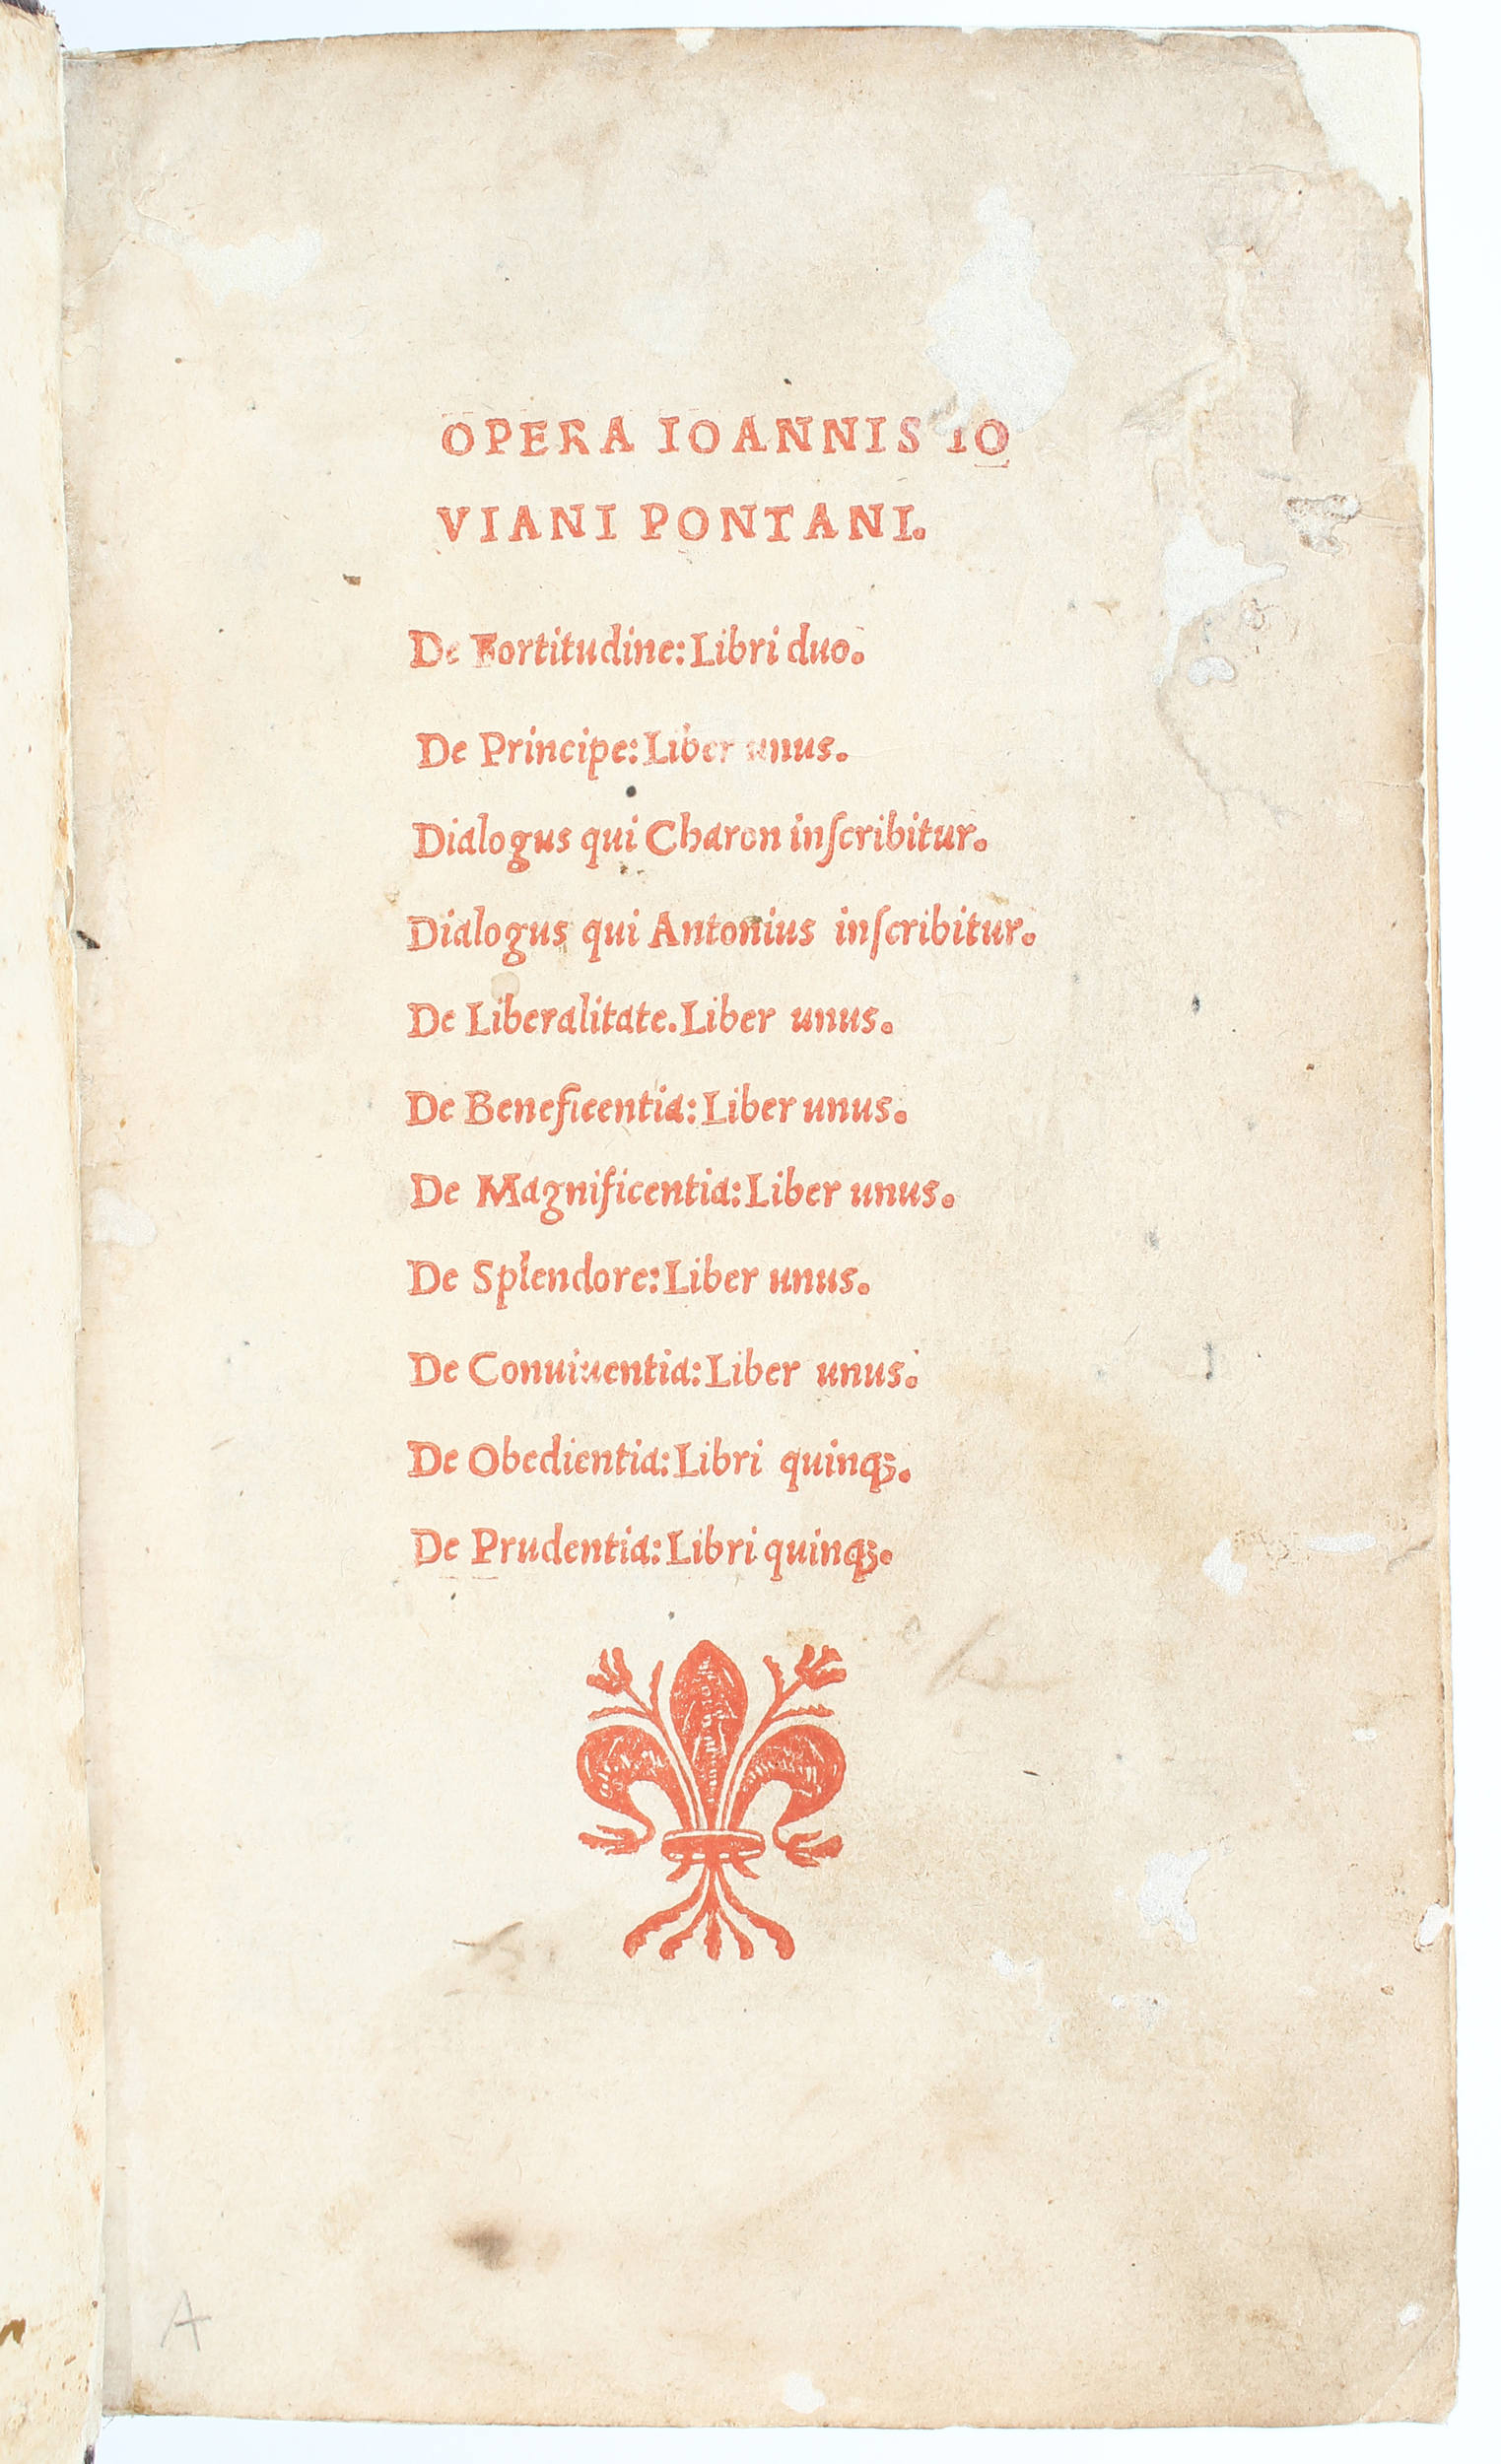 OPERA IOANNIS IO
VIANI PONTANI.
De Fortitudine: Libri duo.
De Principe: Liber unus.
Dialogus qui Charon inſcribitur.
Dialogus qui Antonius inſcribitur.
De Liberalitate. Liber unus.
De Beneficentia: Liber unus.
De Magnificentia: Liber unus.
De Splendore: Liber unus.
De Conuiuentia: Liber unus.
De Obedientia: Libri quinqꝫ.
De Prudentia: Libri quinqꝫ.
A